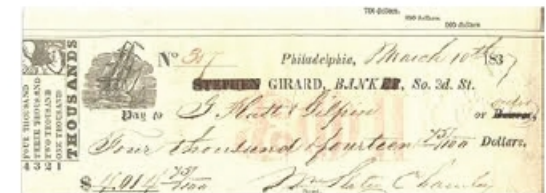 700 dollars.
600 dollars.
500 dollars.
FOUR THOUSAND
THREE THOUSAND
TWO THOUSAND
ONE THOUSAND
THOUSANDS
4 3 2 1
No 307
Philadelphia, March 10th 1837
STEPHEN GIRARD, BANKER, So. 3d. St.
Pay to G Platt & Gilpin or order Bearer,
Four thousand & fourteen 75/100 Dollars.
$ 4,014 75/100